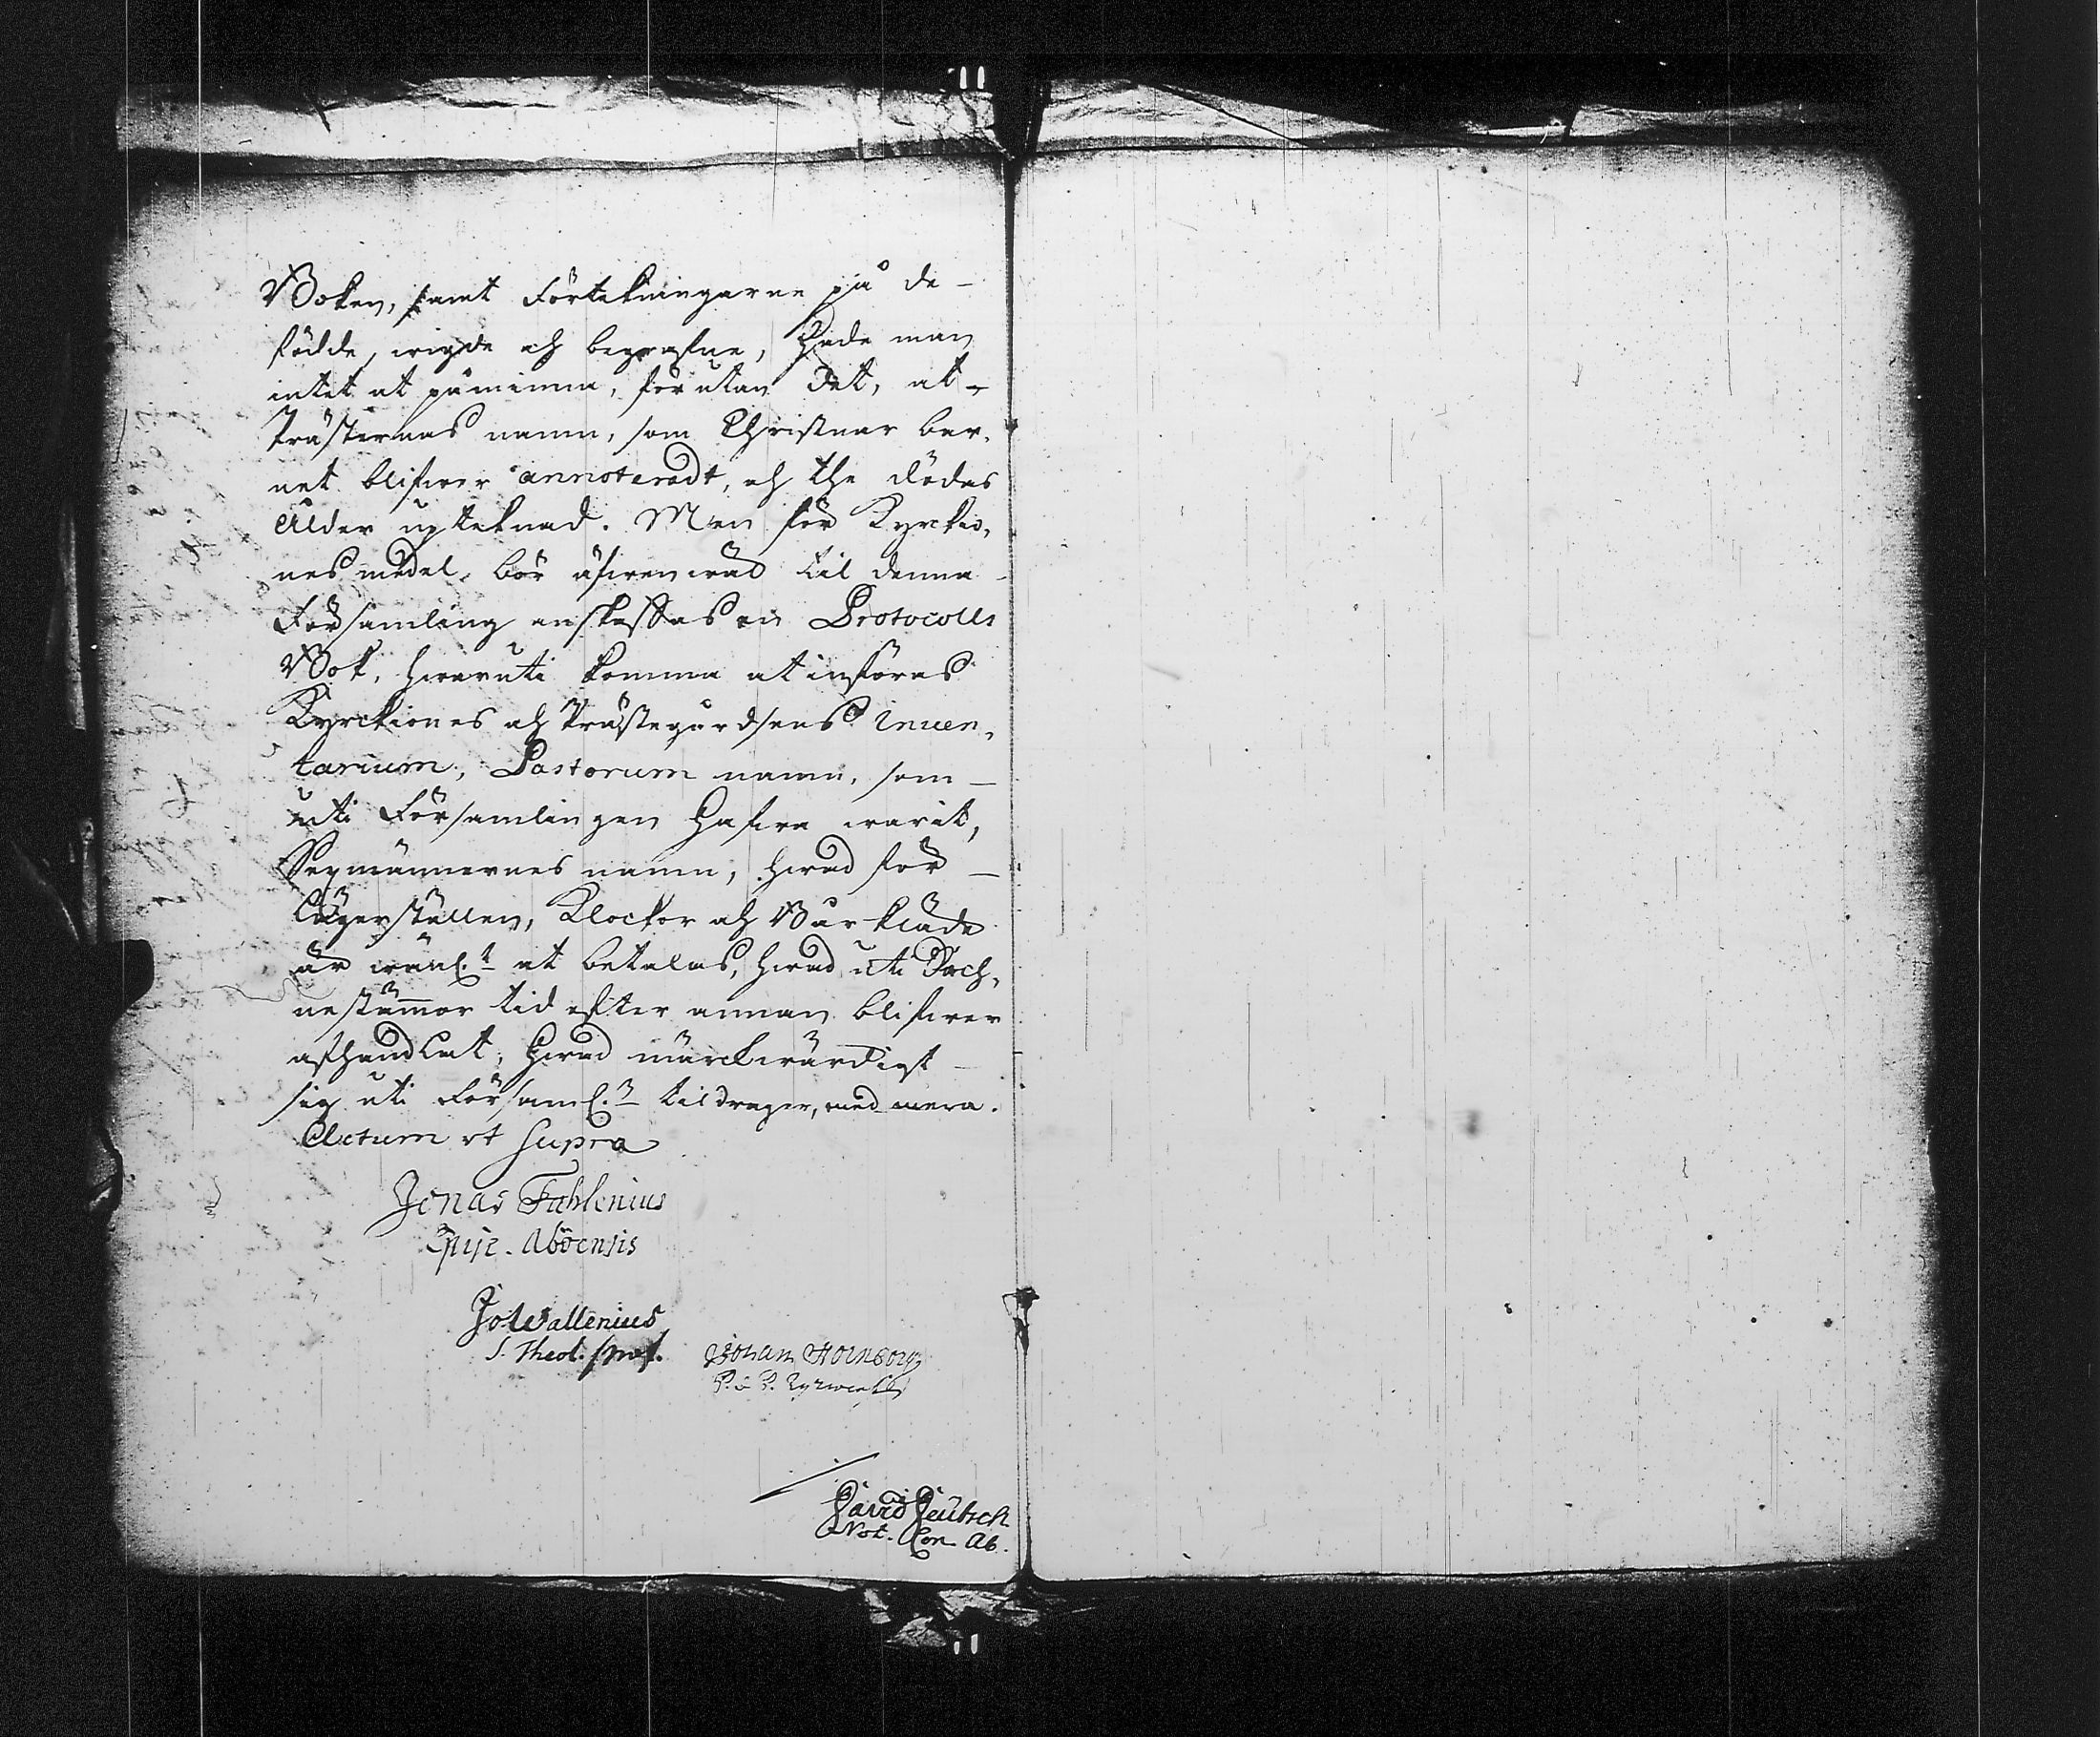 Boken, samt Förtekningarne på de-
födde, wigde och begrafne, Hade man
intet at påminna, förutan Det, at-
Prästernas namn, som Christnar bar,
net blifwer annoteradt, och the dödas
Ålder upteknad. Men för Kyrkio,
nes medel, bör äfwenwäl til denna
Församling anskaffas en Protocolls
Bok, hwaruti komma at införas
Kyrckiones och Prästegårdsens Inven,
tarium, Pastorum namn, som-
uti Församlingen Hafwa warit,
Sexmännernes namn, hwad för-
Lägerställen, Klockor och Bårkläde
är wanl:t at betalas, hwad uti Såch,
nestämmor tid efter annan blifwer
afhandlat, Hwad märckwärdigt-
sig uti Församl:n tildrager, med mera.
Actum ut Supra
Jonas Fahlenius
Episc. Aböensis
Jo Wallenius
S. Theol. Prof.
Johan Hornborg
David Deutsch
Not. Con. Ab.